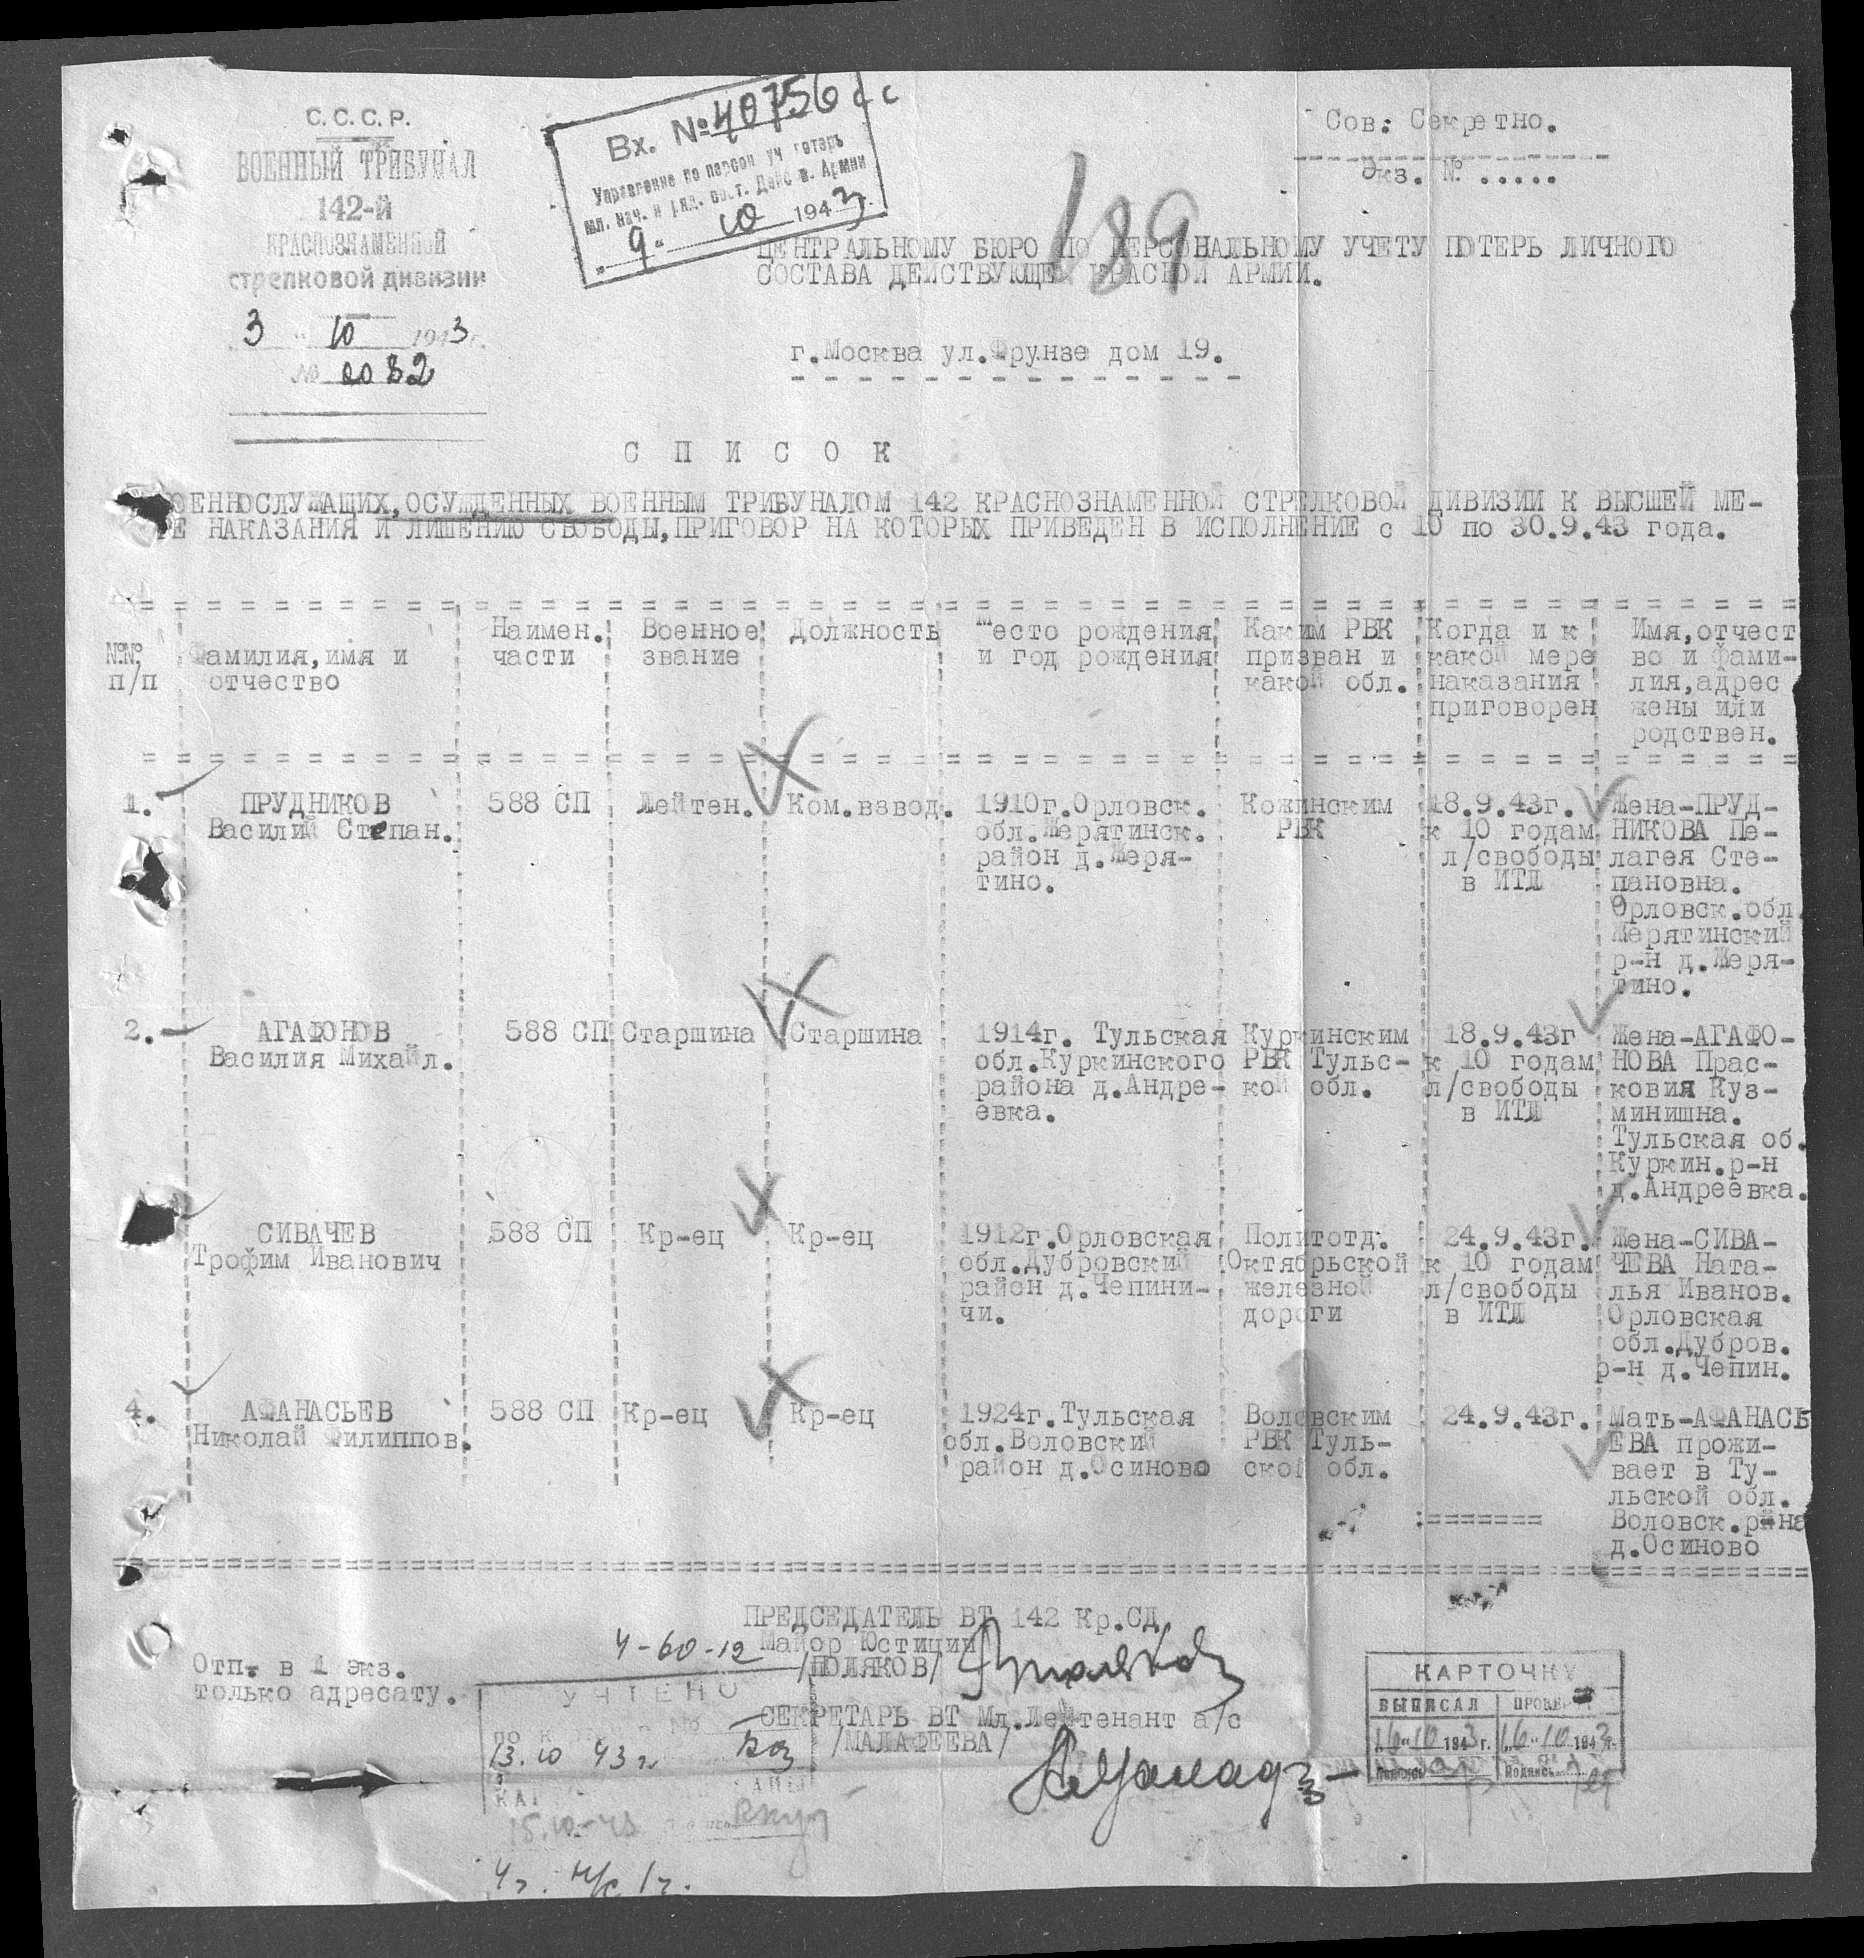 С.С.С.Р.
ВОЕННЫЙ ТРИБУНАЛ
142-й
КРАСНОЗНАМЕННОЙ
стрелковой дивизии
3 " 10 1943 г.
№ 0082
Вх. № 40756 сс
Управление по персон уч потерь
мл. нач. и ряд. сост. Дейс в. Армии
"9" 10 1943 г.
Сов: Секретно.
Экз. № .....
189
ЦЕНТРАЛЬНОМУ БЮРО ПО ПЕРСОНАЛЬНОМУ УЧЕТУ ПОТЕРЬ ЛИЧНОГО
СОСТАВА ДЕЙСТВУЮЩЕЙ КРАСНОЙ АРМИИ.
г.Москва ул.Фрунзе дом 19.
С П И С О К
ОЕННОСЛУЖАЩИХ,ОСУЖДЕННЫХ ВОЕННЫМ ТРИБУНАЛОМ 142 КРАСНОЗНАМЕННОЙ СТРЕЛКОВОЙ ДИВИЗИИ К ВЫСШЕЙ МЕ-
РЕ НАКАЗАНИЯ И ЛИШЕНИЮ СВОБОДЫ,ПРИГОВОР НА КОТОРЫХ ПРИВЕДЕН В ИСПОЛНЕНИЕ с 10 по 30.9.43 года.
№№ п/п
Фамилия,имя и
отчество
Наимен.
части
Военное
звание
Должность
Место рождения
и год рождения
Каким РВК
призван и
какой обл.
Когда и к
какой мере
наказания
приговорен
Имя,отчест
во и фами-
лия,адрес
жены или
родствен.
1.
ПРУДНИКОВ
Василий Степан.
588 СП
Лейтен.
Ком.взвод.
1910г.Орловск.
обл.Жерятинск.
район д.Жеря-
тино.
Кожинским
РВК
18.9.43г.
к 10 годам
л/свободы
в ИТЛ
Жена-ПРУД-
НИКОВА Пе-
лагея Сте-
пановна.
Орловск.обл.
Жерятинский
р-н д.Жеря-
тино.
2.
АГАФОНОВ
Василия Михайл.
588 СП
Старшина
Старшина
1914г. Тульская
обл.Куркинского
района д.Андре-
евка.
Куркинским
РВК Тульс-
кой обл.
18.9.43г
к 10 годам
л/свободы
в ИТЛ
Жена-АГАФО-
НОВА Прас-
ковия Куз-
минишна.
Тульская об.
Куркин.р-н
д.Андреевка.
СИВАЧЕВ
Трофим Иванович
588 СП
Кр-ец
Кр-ец
1912г.Орловская
обл.Дубровский
район д.Чепини-
чи.
Политотд.
Октябрьской
железной
дороги
24.9.43г.
к 10 годам
л/свободы
в ИТЛ
Жена-СИВА-
ЧЕВА Ната-
лья Иванов.
Орловская
обл.Дубров.
р-н д.Чепин.
4.
АФАНАСЬЕВ
Николай Филиппов.
588 СП
Кр-ец
Кр-ец
1924г.Тульская
обл.Воловский
район д.Осиново
Воловским
РВК Туль-
ской обл.
24.9.43г.
Мать-АФАНАСЬ
ЕВА прожи-
вает в Ту-
льской обл.
Воловск.р-на
д.Осиново
ПРЕДСЕДАТЕЛЬ ВТ 142 Кр.СД
Майор Юстиции
/ПОЛЯКОВ/
4-60-12
Отп. в 1 экз.
только адресату.
СЕКРЕТАРЬ ВТ Мл.Лейтенант а/с
/МАЛАФЕЕВА/
УЧТЕНО
13.10 43 г.
15.10-43
КАРТОЧКУ
ВЫПИСАЛ
ПРОВЕР
"16"10 1943г.
"16"10 1943г.
Подпись
Подпись